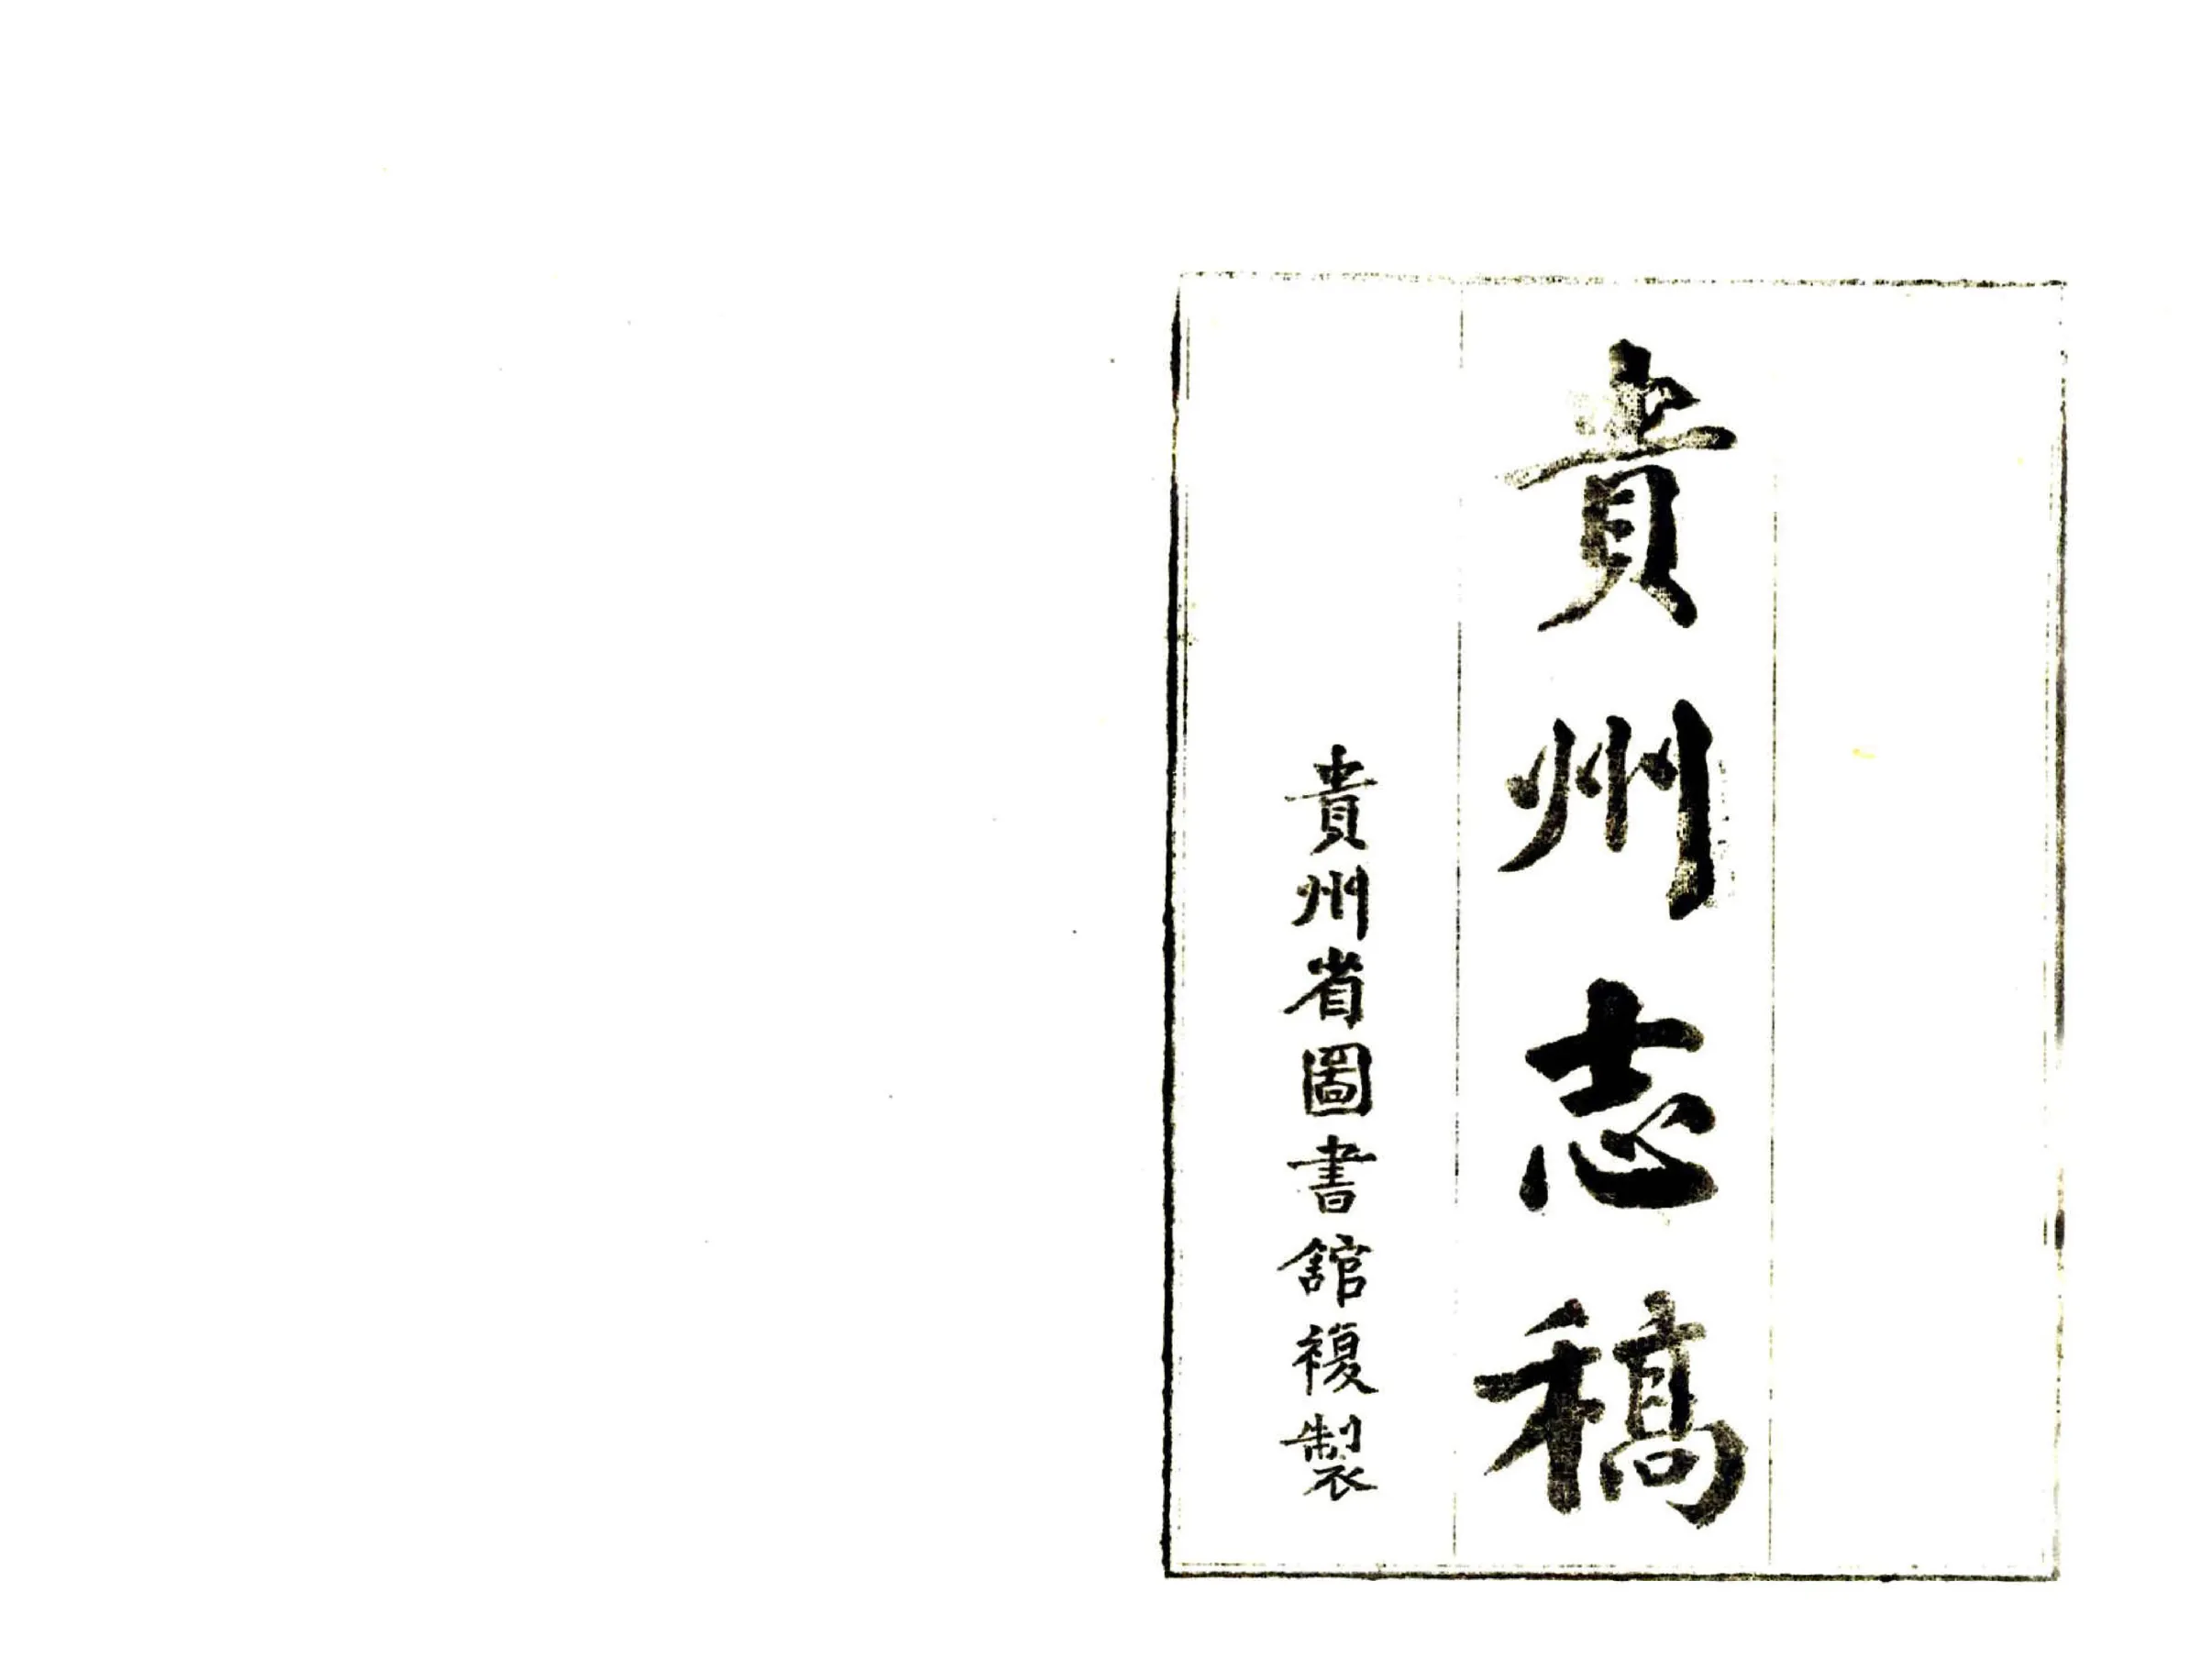 貴州志稿
貴州省圖書舘複製